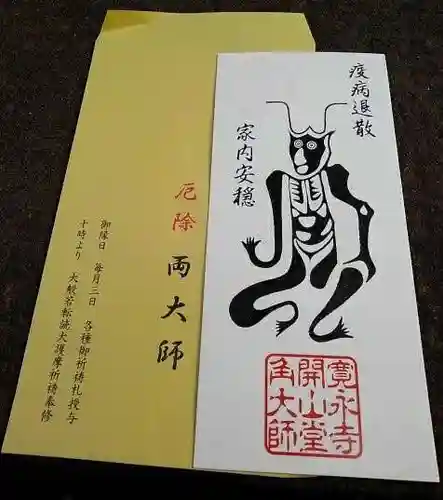 疫病退散
家内安穏
寛永寺
開山堂
角大師
厄除 両大師
御縁日 毎月三日 各種御祈祷札授与
十時より 大般若転読大護摩祈祷奉修